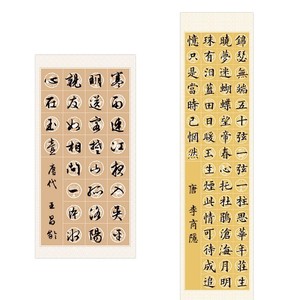 寒雨連江夜入吳平
明送客楚山孤洛陽
親友如相問一片冰
心在玉壺 唐代 王昌齡
錦瑟無端五十弦一弦一柱思華年莊生
曉夢迷蝴蝶望帝春心托杜鵑滄海月明
珠有泪藍田日暖玉生煙此情可待成追
憶只是當時已惘然 唐 李商隱